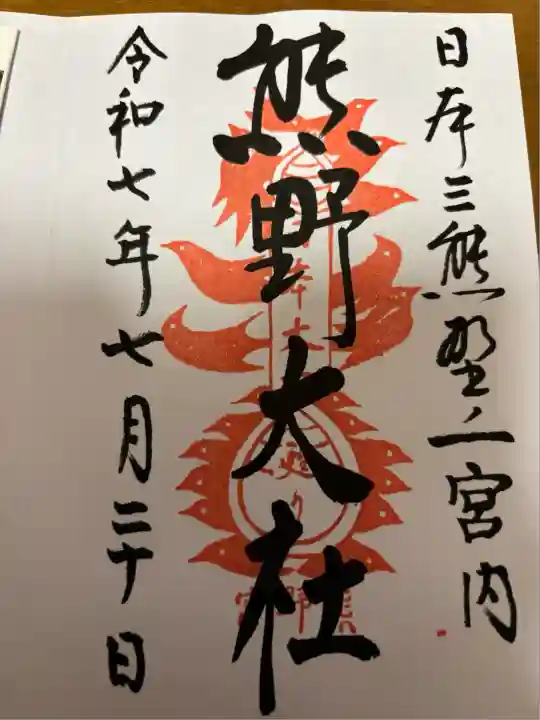 日本三熊野之一宮内
熊野大社
令和七年七月二十日